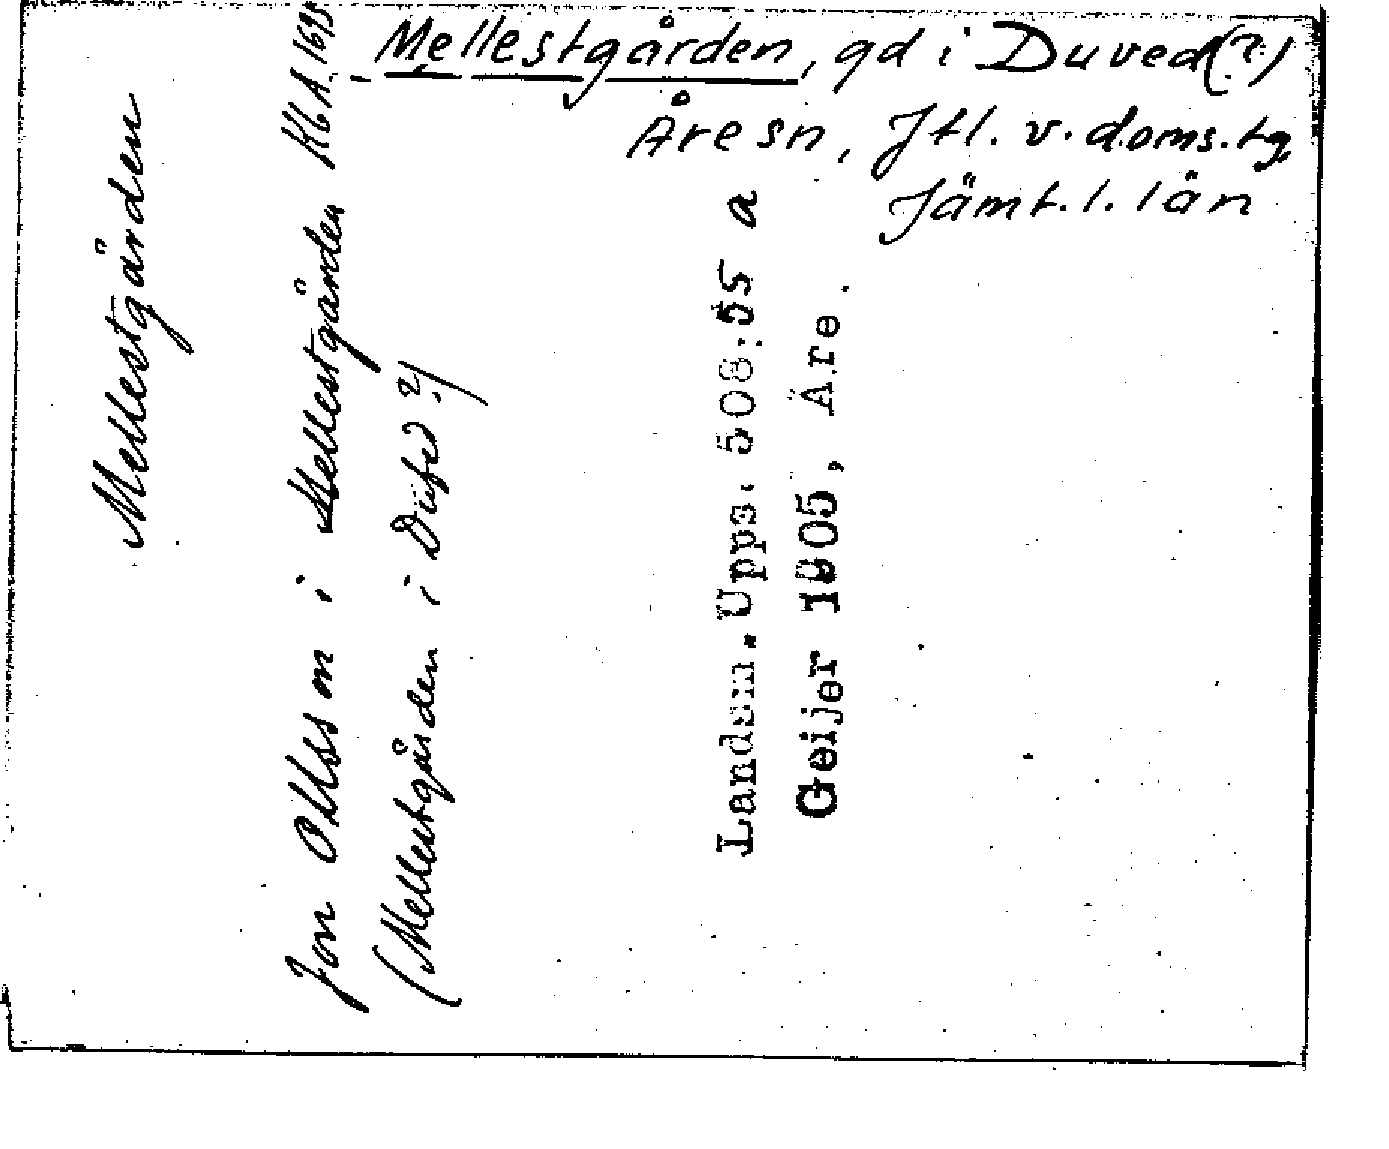 Mellestgården, gd i Duved(?)
Åre sn, Jtl. v. doms.tg
Jämt.l. län
Mellestgården
Jon Olsson i Mellestgården KbA. 1695
(Mellestgården i Dufed?)
Landsm. Upps. 508:55 a
Geijer 1905, Åre.